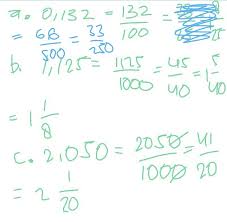 a. 0,132 = 132/100 =
= 66/500 = 33/250
b. 1,125 = 1125/1000 = 45/40 = 1 5/40
= 1 1/8
c. 2,050 = 2050/1000 = 41/20
= 2 1/20